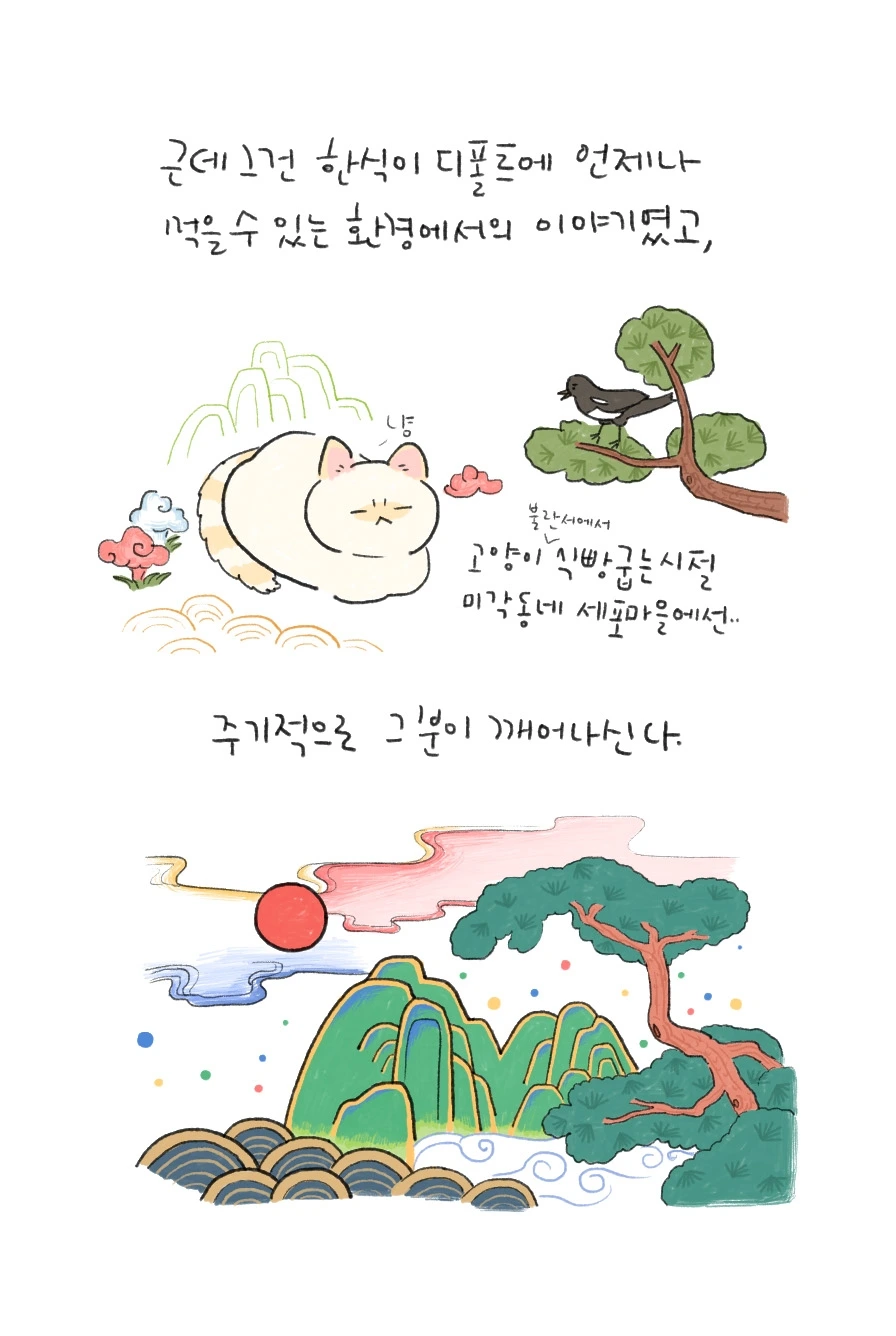 근데 그건 한식이 디폴트에 언제나
먹을 수 있는 환경에서의 이야기였고,
냥
불란서에서
고양이 식빵굽는시절
미각동네 세포마을에선..
주기적으로 그분이 깨어나신다.